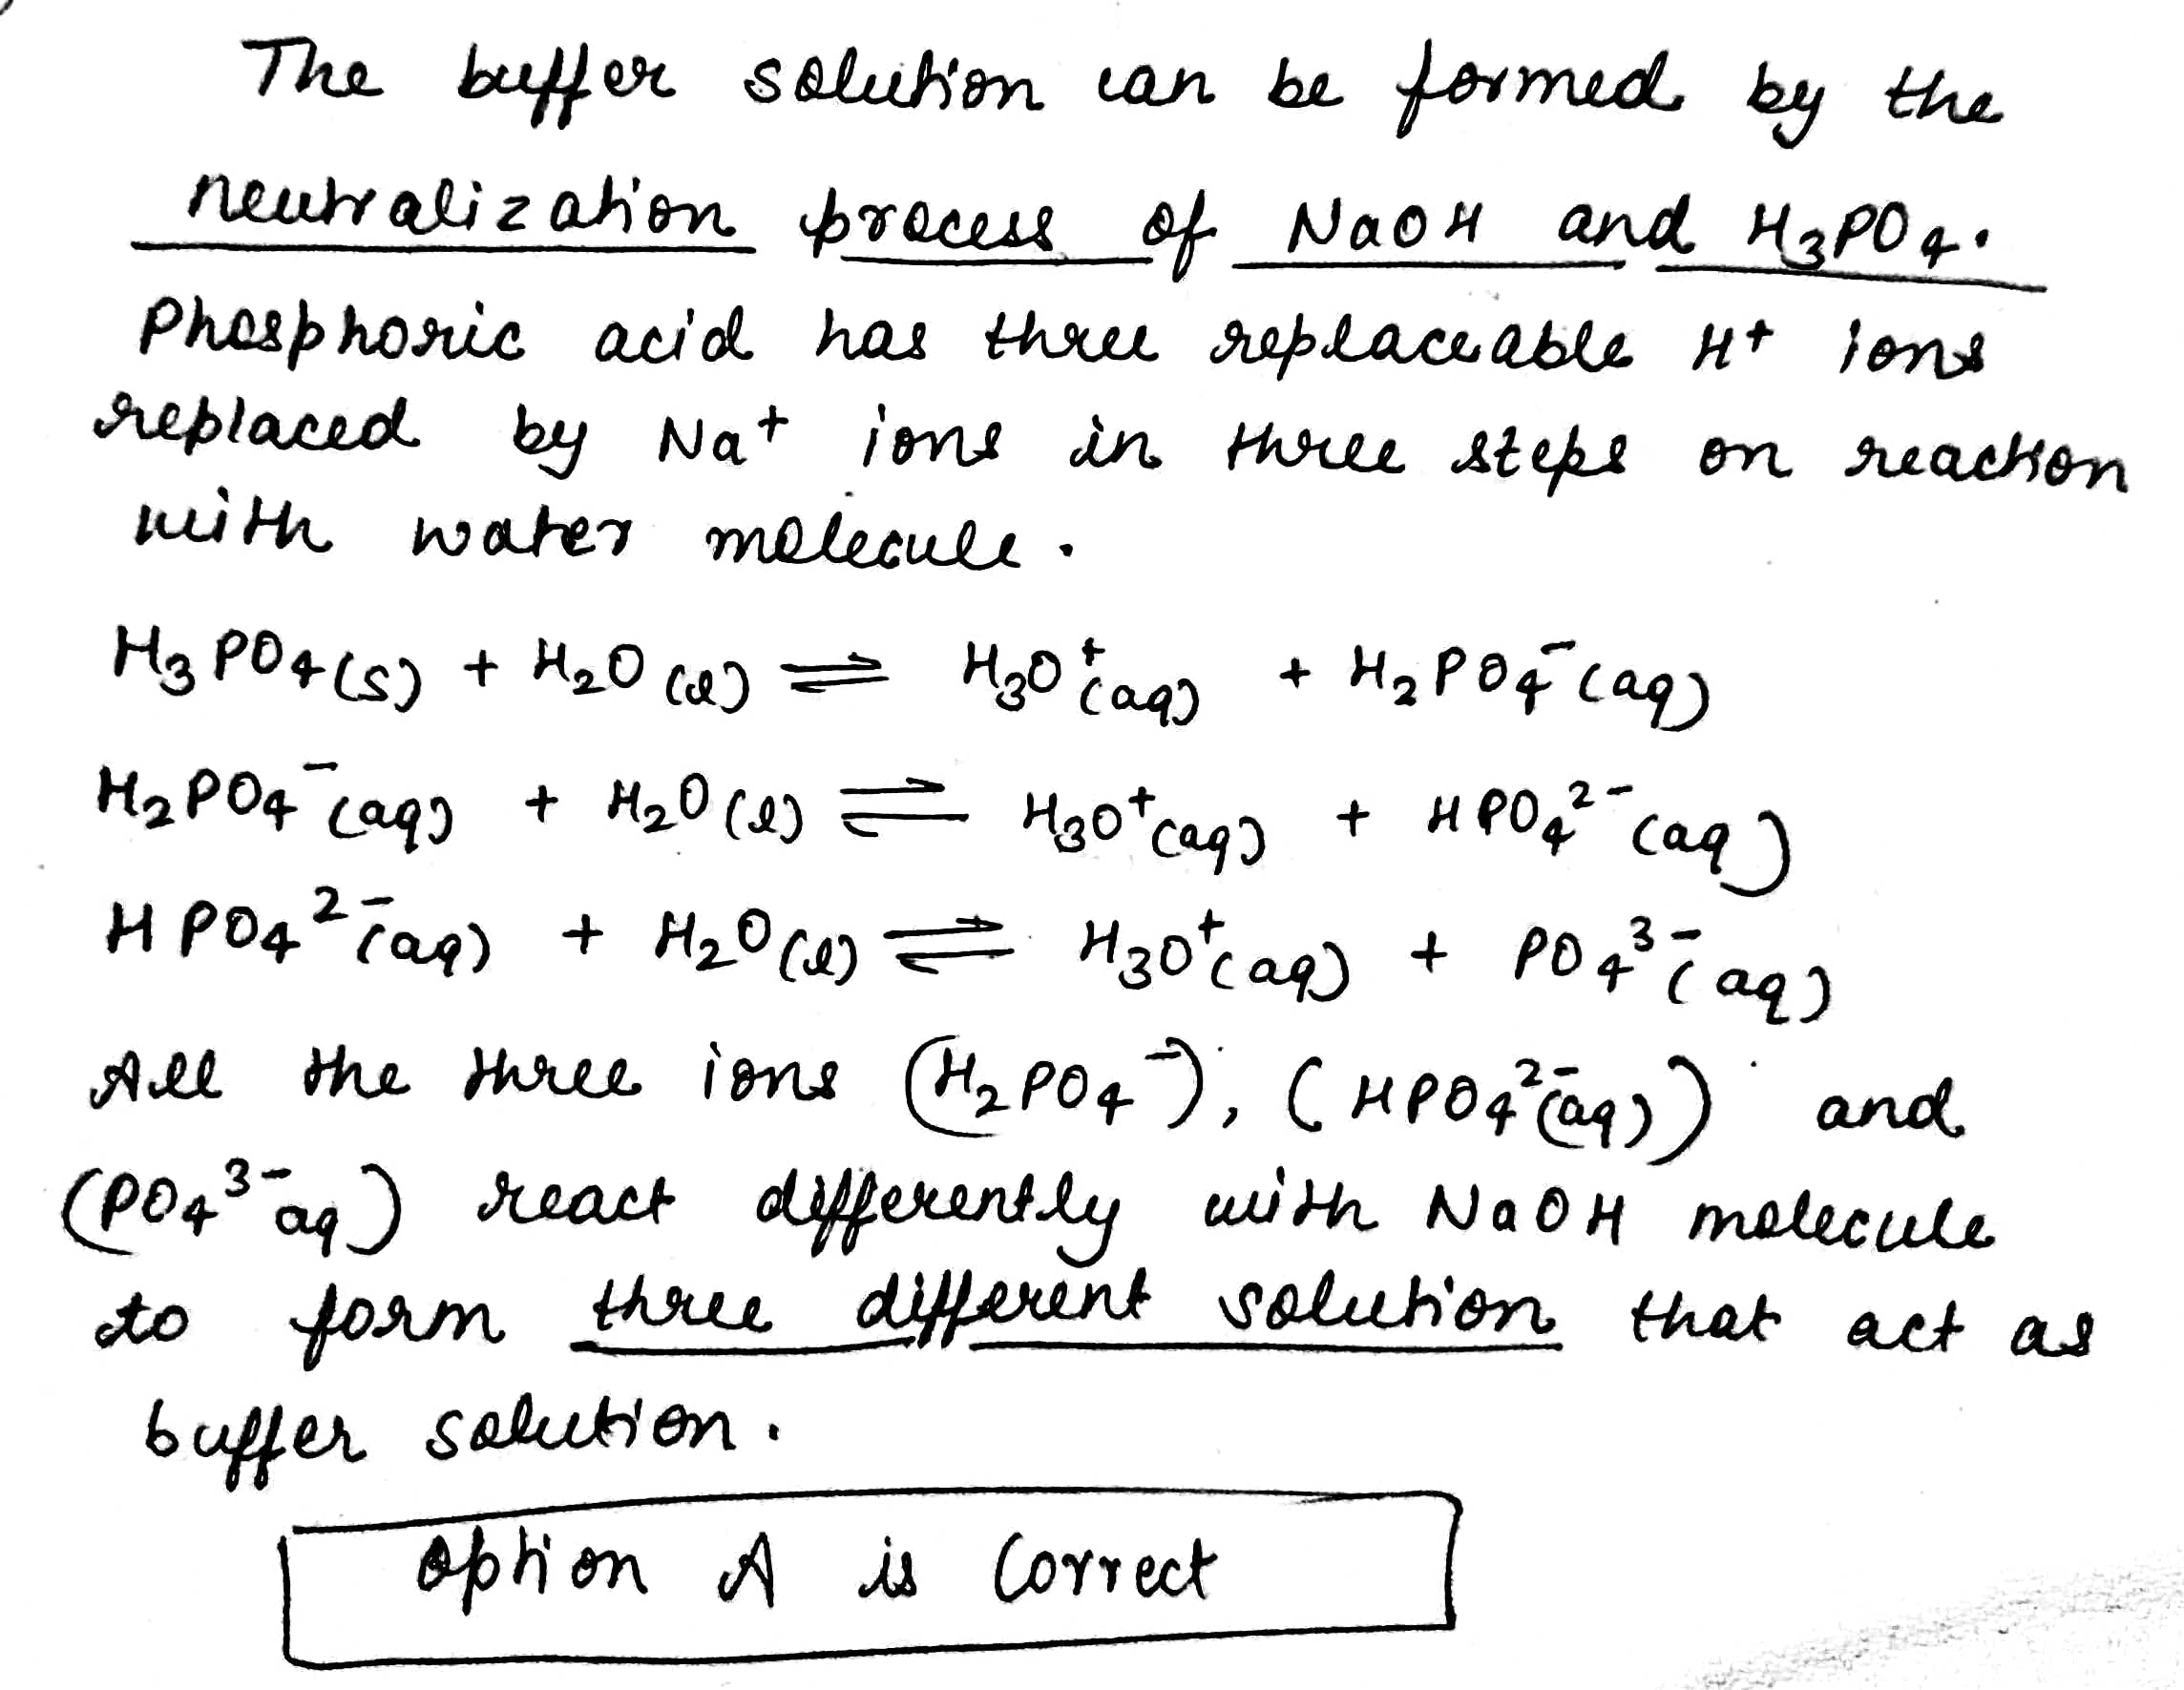 The buffer solution can be formed by the
neutralization process of NaOH and H₃PO₄.
Phosphoric acid has three replaceable H⁺ ions
replaced by Na⁺ ions in three steps on reaction
with water molecule.
H₃PO₄(s) + H₂O(l) ⇌ H₃O⁺(aq) + H₂PO₄⁻(aq)
H₂PO₄⁻(aq) + H₂O(l) ⇌ H₃O⁺(aq) + HPO₄²⁻(aq)
HPO₄²⁻(aq) + H₂O(l) ⇌ H₃O⁺(aq) + PO₄³⁻(aq)
All the three ions (H₂PO₄⁻), (HPO₄²⁻(aq)) and
(PO₄³⁻aq) react differently with NaOH molecule
to form three different solution that act as
buffer solution.
option A is Correct